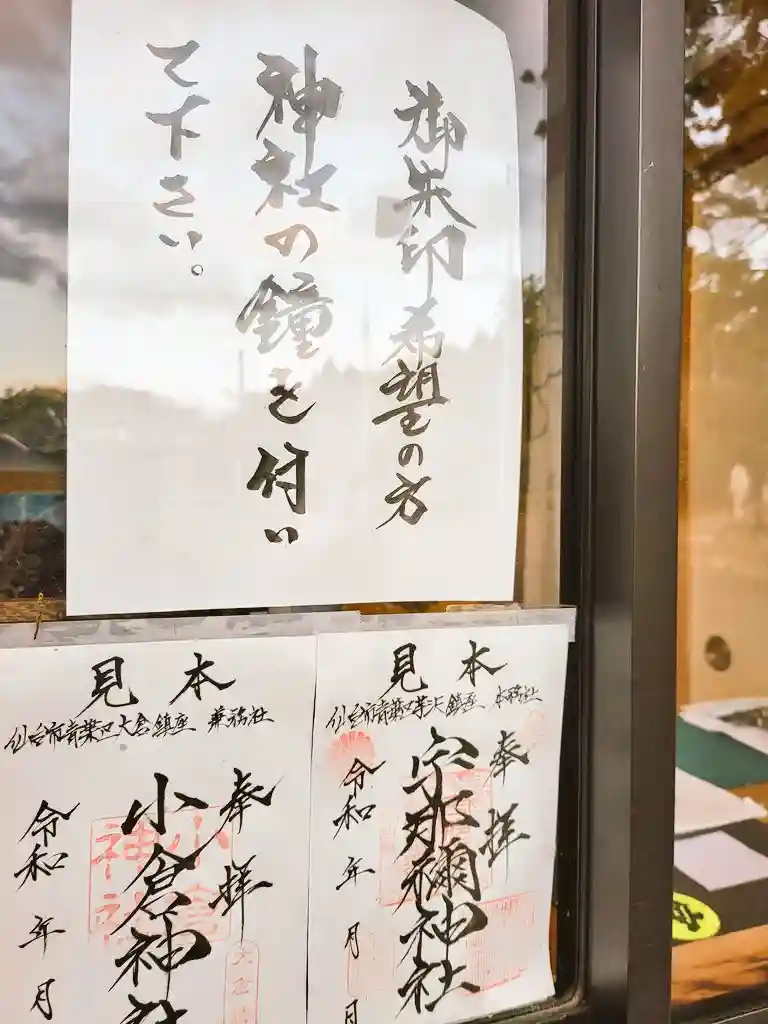 御朱印希望の方
神社の鐘を付い
て下さい。
見本
仙台市青葉区芋沢鎮座 本務社
奉拝
宇那禰神社
令和 年 月 日
見本
仙台市青葉区大倉鎮座 兼務社
奉拝
小倉神社
小倉神社
令和 年 月